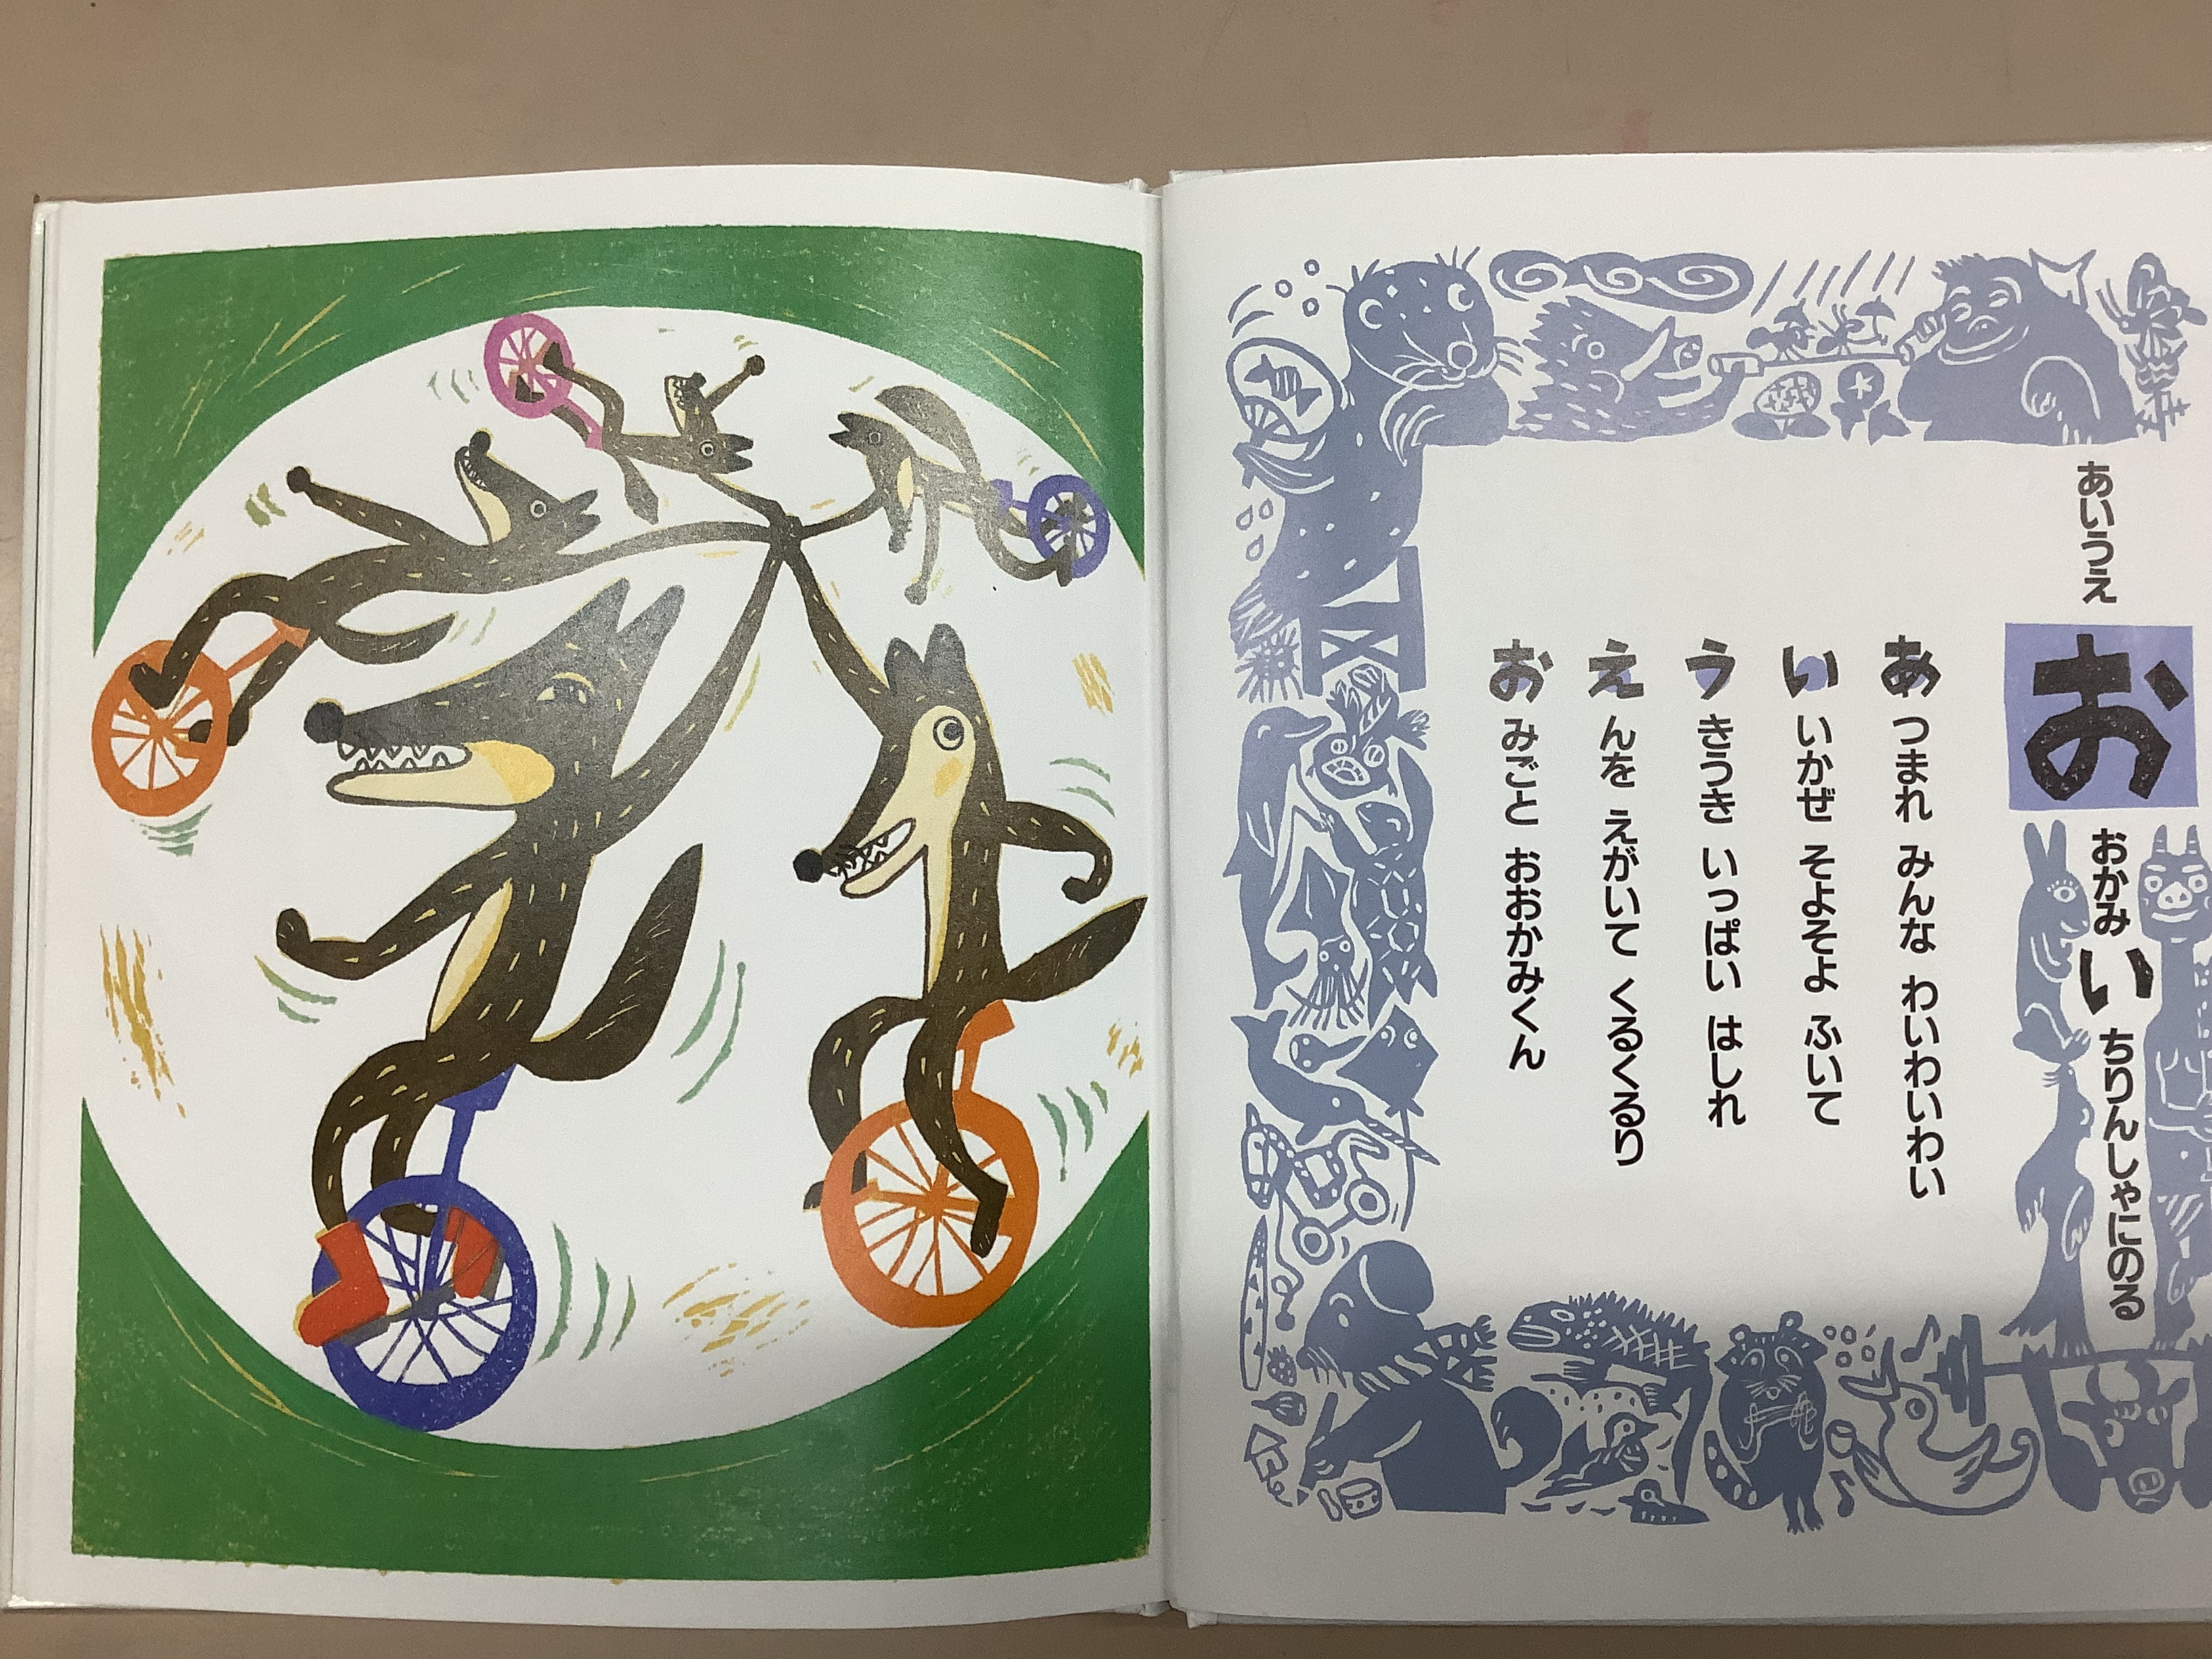 あいうえ お おかみ い ちりんしゃにのる
あつまれ みんな わいわいわい
いいかぜ そよそよ ふいて
うきうき いっぱい はしれ
えんを えがいて くるくるり
おみごと おおかみくん